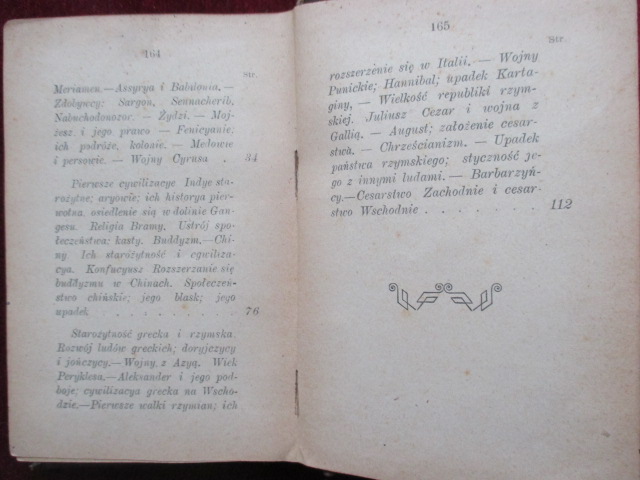 164
Str.
Meriamen.—Assyrya i Babilonia.—
Zdobywcy: Sargon, Sennacherib,
Nabuchodonozor. — Żydzi. — Moj-
żesz i jego prawo — Fenicyanie:
ich podróże, kolonie. — Medowie
i persowie. — Wojny Cyrusa . 34
Pierwsze cywilizacye Indye sta-
rożytne; aryowie; ich historya pier-
wotna, osiedlenie się w dolinie Gan-
gesu. Religia Bramy. Ustrój spo-
łeczeństwa; kasty. Buddyzm.—Chi-
ny Ich starożytność i cywiliza-
cya. Konfucyusz Rozszerzanie się
buddyzmu w Chinach. Społeczeń-
stwo chińskie; jego blask; jego
upadek . . . . . . . . 76
Starożytność grecka i rzymska.
Rozwój ludów greckich; doryjczycy
i jończycy.—Wojny z Azyą. Wiek
Peryklesa.—Aleksander i jego pod-
boje; cywilizacya grecka na Wscho-
dzie.—Pierwsze walki rzymian; ich
165
Str.
rozszerzenie się w Italii. — Wojny
Punickie; Hannibal; upadek Karta-
giny, — Wielkość republiki rzym-
skiej. Juliusz Cezar i wojna z
Gallią. — August; założenie cesar-
stwa. — Chrześcianizm. — Upadek
państwa rzymskiego; styczność je-
go z innymi ludami. — Barbarzyń-
cy.—Cesarstwo Zachodnie i cesar-
stwo Wschodnie . . . . . . . 112